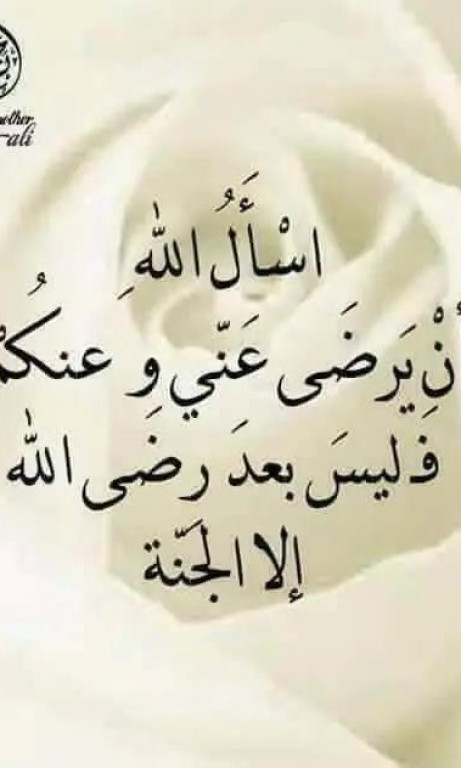 mother
-ali
اسْأَلُ اللهِ
أنْ يَرضَى عَنّي و عنكُم
فليسَ بعدَ رضَى الله
إلا الجَنّة